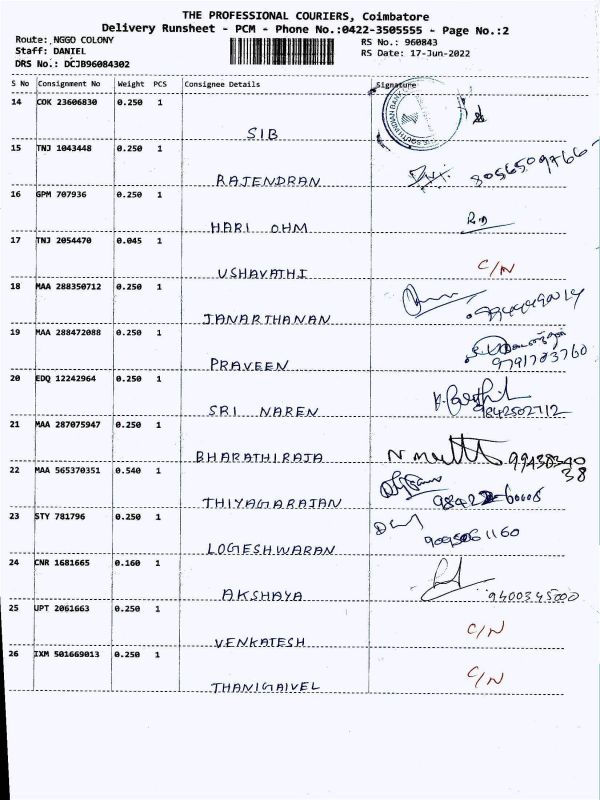 THE PROFESSIONAL COURIERS, Coimbatore
Delivery Runsheet - PCM - Phone No.:0422-3505555 - Page No.:2
Route: NGGO COLONY
Staff: DANIEL
DRS No.: DCJB96084302
RS No.: 960843
RS Date: 17-Jun-2022
S No Consignment No Weight PCS Consignee Details Signature
14 COK 23606830 0.250 1
SIB
15 TNJ 1043448 0.250 1
RAJENDRAN 8056509766
16 GPM 707936 0.250 1
HARI OHM
17 TNJ 2054470 0.045 1
USHAVATHI C/N
18 MAA 288350712 0.250 1
JANARTHANAN
19 MAA 288472088 0.250 1
PRAVEEN 9791783760
20 EDQ 12242964 0.250 1
SRI NAREN 9842502712
21 MAA 287075947 0.250 1
BHARATHIRAJA
22 MAA 565370351 0.540 1
THIYAGARAJAN
23 STY 781796 0.250 1
LOGESHWARAN
24 CNR 1681665 0.160 1
AKSHAYA 9400345000
25 UPT 2061663 0.250 1
VENKATESH C/N
26 IXM 501669013 0.250 1
THANIGAIVEL C/N